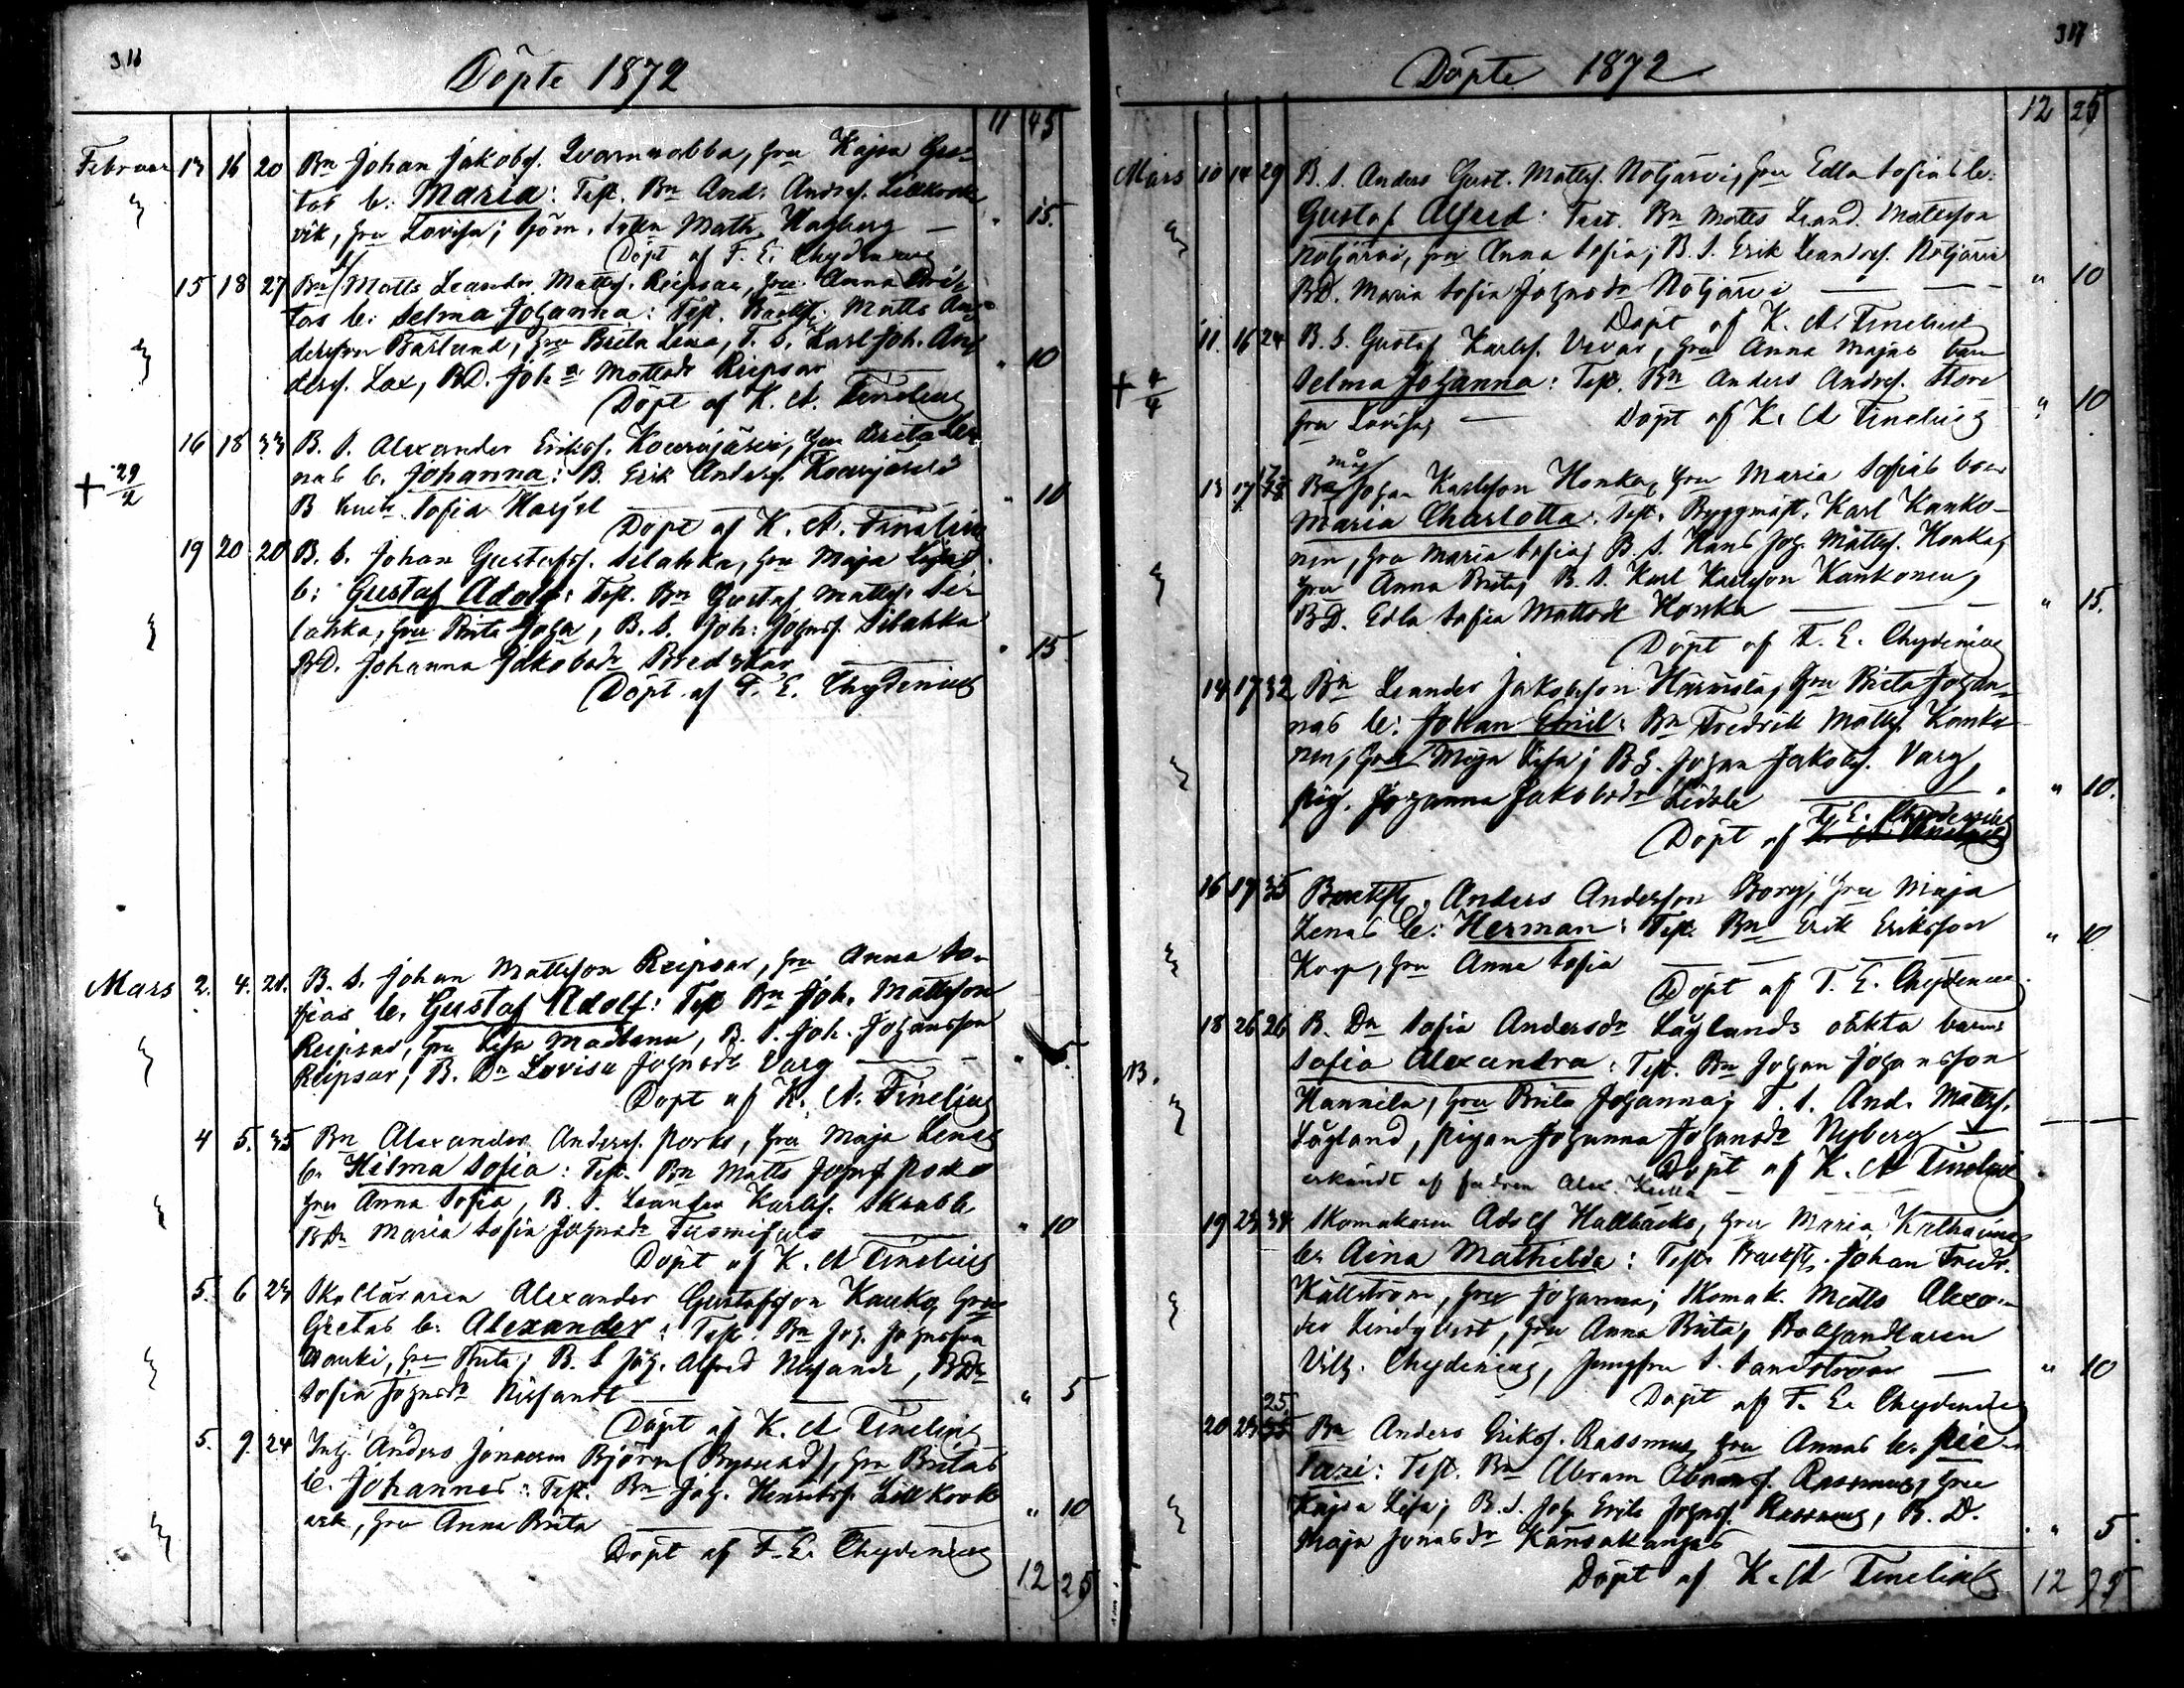 316
Döpte 1872
11 45
Februar 13 16 20 Bn Johan Jakobsf. Qvarnnabba, hru Kajsa Gre-
tas b. Maria: Test. Bn And. Andersf. Lillkrok
vik, hru Lovisa; Math. Hagberg — " 15.
Döpt af F. E. Chydenius
15 18 27 Bn Matts Leander Mattsf. Reipsar, hru Anna Bri-
tas b. Selma Johanna: Test. Backst. Matts An-
dersson Båslund, hru Brita Lena, T. S. Karl Joh. An-
dersf. Lax, BD. Joha Mattsdr Reipsar " 10
Döpt af K. A. Finelius
16 18 33 B. S. Alexander Eriksf. Koerajärvi, hru Brita Le-
+ 29/2 nas b. Johanna: B. Erik Andersf. Koerajärvi
B Sofia " 10
Döpt af K. A. Finelius
19 20 20 B. S. Johan Gustafsf. Silahka, hru Maja Lisas
b: Gustaf Adolf: Test. Bn Gustaf Mattsf. Si-
lahka, hru Brita Joha, B. S. Joh: Johnsf. Silahka
BD. Johanna Jakobsdr Bredskär " 15.
Döpt af F. E. Chydenius
Mars 2. 4. 21. B. S. Johan Mattsson Reipsar, hru Anna So-
fias b. Gustaf Adolf: Test Bn Joh. Mattsson
Reipsar, hru Lisa Madlena, B. S. Joh. Johansson
Reipsar, B. Dr Lovisa Johnsdr Varg — " 5.
Döpt af K. A. Finelius
4 5. 35 Bn Alexander Andersf. Porko, hru Maja Lenas
b. Hilma Sofia: Test. Bn Matts Johnsf Porko
hru Anna Sofia, B. S. Leander Karlsf. Skrabb,
BDr Maria Sofia Johnsdr " 10
Döpt af K. A Finelius
5. 6 23 Alexander Gustafsson Kauko, hru
Gretas b. Alexander: Test. Bn Joh. Johnsson
Wanki, hru Brita; B. S Joh. Alfred Nissandt, BDr
Sofia Johnsdr Nissandt — " 5
Döpt af K. A Finelius
5. 9 24 Inh. Anders Jonasson Björn (Byskad), hru Britas
b. Johannes: Test. Bn Joh. Henriksf. Lillkrok
vik, hru Anna Brita " 10
Döpt af F. E. Chydenius
12 25
317
Döpte 1872
12 25
Mars 10 14 29 B. S. Anders Gust. Mattsf. Nötjärvi, hru Edla Sofias b:
Gustaf Alfred: Test. Bn Matts Leand. Mattsson
Nötjärvi, hru Anna Sofia; B. S. Erik Leandersf. Nötjärvi
BD. Maria Sofia Johnsdr Nötjärvi — " 10
Döpt af K. A. Finelius
11. 16 24 B. S. Gustaf Karlsf. Uvar, hru Anna Majas barn
+ 4/4 Selma Johanna: Test. Bn Anders Andersf. Store
hru Lovisa, — Döpt af K. A Finelius " 10
13 17 Johan Karlsson Honka, hru Maria Sofias barn
Maria Charlotta. Test. Byggmäst. Karl Kanko-
nen, hru Maria Sofia; B. S. Hans Joh. Mattsf. Honka,
hru Anna Brita, B. S. Karl Karlsson Kankonen,
BD. Edla Sofia Mattsdr Honka — " 15.
Döpt af F. E. Chydenius
14 17 32 Bn Leander Jakobsson Härmälä, hru Brita Johan-
nas b: Johan Emil: Bn Fredrik Mattsf. Kanko-
nen, hru Maja Lisa; B S. Johan Jakobsf. Varg,
pig. Johanna Jakobsdr — " 10.
F. E. Chydenius
Döpt af K. A. Finelius
16 17 35 Backst. Anders Andersson Borg, hru Maja
Lenas b: Herman: Test. Bn Erik Eriksson
Korp, hru Anna Sofia — " 10
Döpt af F. E. Chydenius.
18 26 26 B. Dr Sofia Andersdr Låglands oäkta barn
Sofia Alexandra: Test. Bn Johan Johansson
Hannila, hru Brita Johanna; T. S. And. Mattsf.
Lågland, pigan Johanna Johansdr Nyberg —
Döpt af K. A Finelius
erkändt af fadren Alex.
19 23 34 Skomakaren Adolf Hallbäcks, hru Maria Katharinas
b. Aina Mathilda: Test. Backst. Johan Fredr.
Källström, hru Johanna; Skomak. Matts Alexan-
der Lindqvist, hru Anna Brita, Bokhandlaren
Vilh. Chydenius, Jungfru S. Sandström — " 10
Döpt af F. E. Chydenius
25.
20 23 Bn Anders Eriksf. Rassmus, hru Annas b. Pie-
tari: Test. Bn Abram Abramsf. Rassmus, hru
Kajsa Lisa; B. S. Joh. Erik Johnsf. Rassmus, B. D.
Maja Jonasdr Känsäkangas " 5.
Döpt af K. A Finelius
12 95